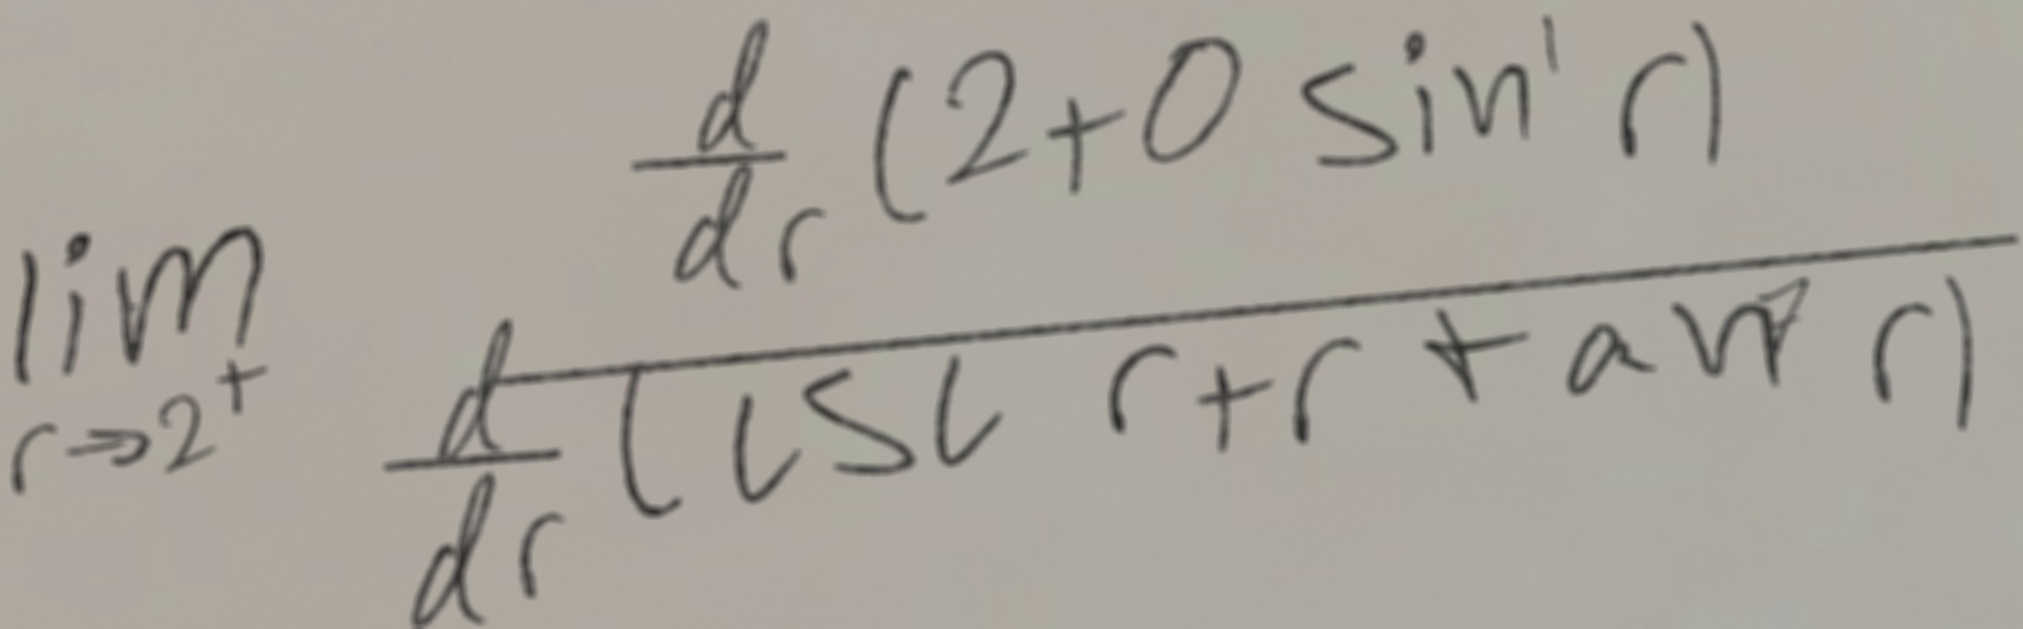 \lim_{r \to 2^+} \frac{\frac{d}{dr}(2+0 \sin^1 r)}{\frac{d}{dr}(\csc r+r+\tan^7 r)}